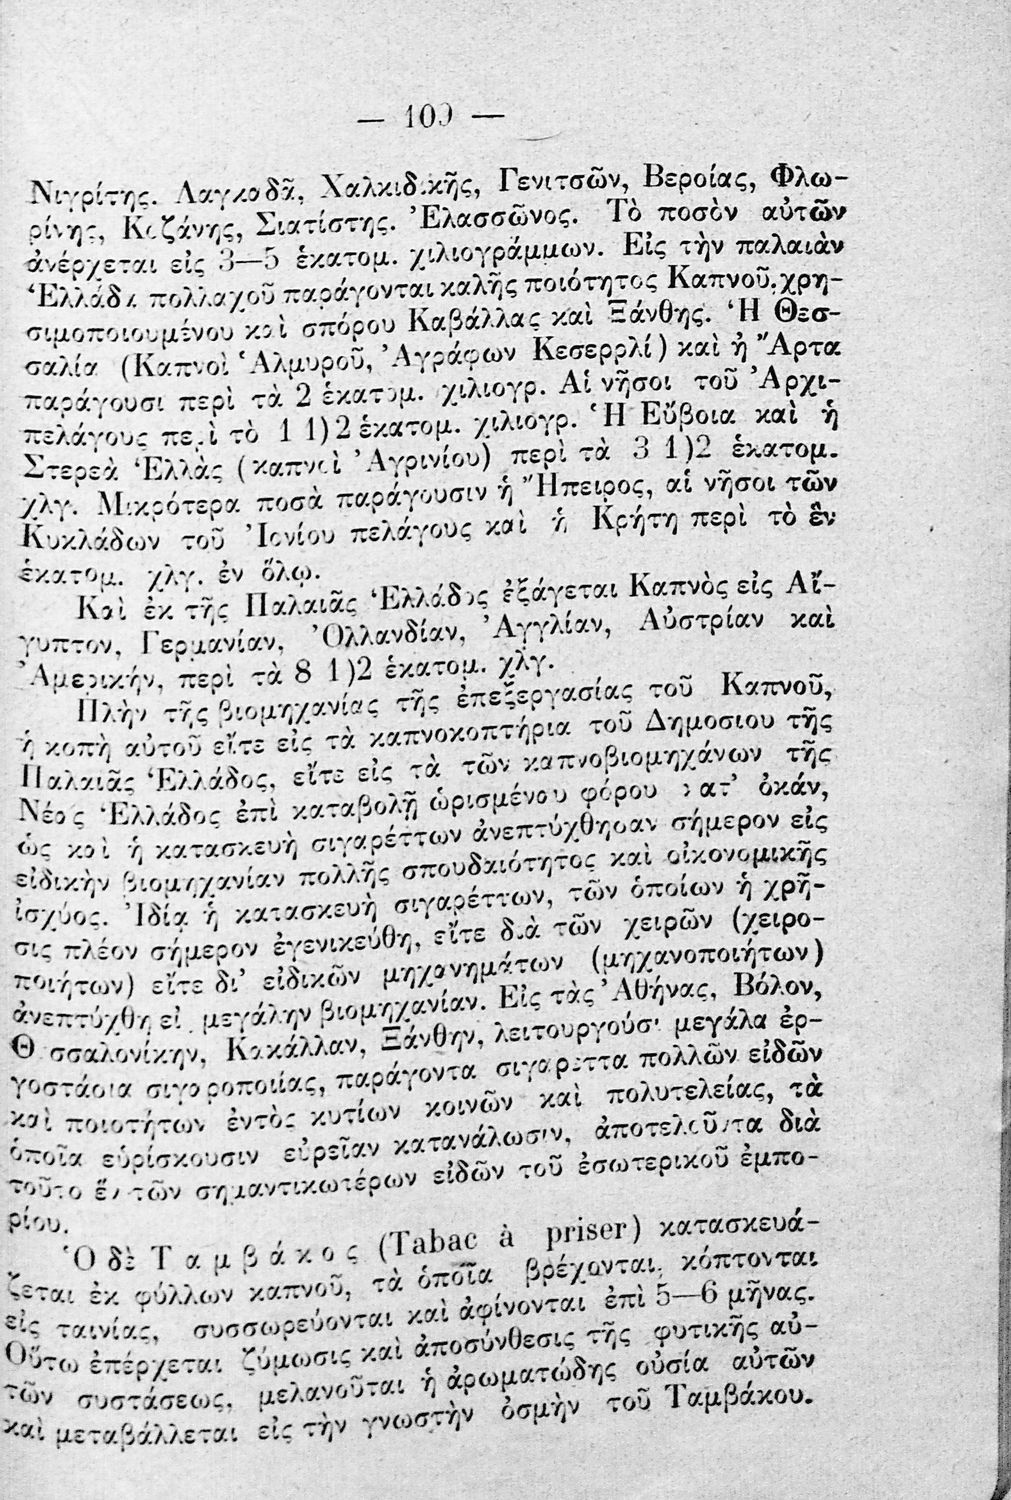 — 109 —
Νιγρίτης. Λαγκαδᾶ, Χαλκιδικῆς, Γενιτσῶν, Βεροίας, Φλω-
ρίνης, Κοζάνης, Σιατίστης. Ἐλασσῶνος. Τὸ ποσὸν αὐτῶν
ἀνέρχεται εἰς 3—5 ἑκατομ. χιλιογράμμων. Εἰς τὴν παλαιὰν
Ἑλλάδα πολλαχοῦ παράγονται καλῆς ποιότητος Καπνοῦ, χρη-
σιμοποιουμένου καὶ σπόρου Καβάλλας καὶ Ξάνθης. Ἡ Θεσ-
σαλία (Καπνοὶ Ἁλμυροῦ, Ἀγράφων Κεσερρλί) καὶ ἡ Ἄρτα
παράγουσι περὶ τὰ 2 ἑκατομ. χιλιογρ. Αἱ νῆσοι τοῦ Ἀρχι-
πελάγους περὶ τὸ 1 1)2 ἑκατομ. χιλιογρ. Ἡ Εὔβοια καὶ ἡ
Στερεὰ Ἑλλὰς (καπνοὶ Ἀγρινίου) περὶ τὰ 3 1)2 ἑκατομ.
χλγ. Μικρότερα ποσὰ παράγουσιν ἡ Ἤπειρος, αἱ νῆσοι τῶν
Κυκλάδων τοῦ Ἰονίου πελάγους καὶ ἡ Κρήτη περὶ τὸ ἓν
ἑκατομ. χλγ. ἐν ὅλῳ.
Καὶ ἐκ τῆς Παλαιᾶς Ἑλλάδος ἐξάγεται Καπνὸς εἰς Αἴ-
γυπτον, Γερμανίαν, Ὀλλανδίαν, Ἀγγλίαν, Αὐστρίαν καὶ
Ἀμερικήν, περὶ τὰ 8 1)2 ἑκατομ. χλγ.
Πλὴν τῆς βιομηχανίας τῆς ἐπεξεργασίας τοῦ Καπνοῦ,
ἡ κοπὴ αὐτοῦ εἴτε εἰς τὰ καπνοκοπτήρια τοῦ Δημοσιου τῆς
Παλαιᾶς Ἑλλάδος, εἴτε εἰς τὰ τῶν καπνοβιομηχάνων τῆς
Νέας Ἑλλάδος ἐπὶ καταβολῇ ὡρισμένου φόρου κατ’ ὀκάν,
ὡς καὶ ἡ κατασκευὴ σιγαρέττων ἀνεπτύχθησαν σήμερον εἰς
εἰδικὴν βιομηχανίαν πολλῆς σπουδαιότητος καὶ οἰκονομικῆς
ἰσχύος. Ἰδίᾳ ἡ κατασκευὴ σιγαρέττων, τῶν ὁποίων ἡ χρῆ-
σις πλέον σήμερον ἐγενικεύθη, εἴτε διὰ τῶν χειρῶν (χειρο-
ποιήτων) εἴτε δι’ εἰδικῶν μηχανημάτων (μηχανοποιήτων)
ἀνεπτύχθη εἰς μεγάλην βιομηχανίαν. Εἰς τὰς Ἀθήνας, Βόλον,
Θεσσαλονίκην, Κακάλλαν, Ξάνθην, λειτουργοῦσι μεγάλα ἐρ-
γοστάσια σιγαροποιίας, παράγοντα σιγαρεττα πολλῶν εἰδῶν
καὶ ποιοτήτων ἐντὸς κυτίων κοινῶν καὶ πολυτελείας, τὰ
ὁποῖα εὑρίσκουσιν εὐρεῖαν κατανάλωσιν, ἀποτελοῦντα διὰ
τοῦτο ἓν τῶν σημαντικωτέρων εἰδῶν τοῦ ἐσωτερικοῦ ἐμπο-
ρίου.
Ὁ δὲ Ταμβάκος (Tabac à priser) κατασκευά-
ζεται ἐκ φύλλων καπνοῦ, τὰ ὁποῖα βρέχονται, κόπτονται
εἰς ταινίας, συσσωρεύονται καὶ ἀφίνονται ἐπὶ 5—6 μῆνας.
Οὕτω ἐπέρχεται ζύμωσις καὶ ἀποσύνθεσις τῆς φυτικῆς αὐ-
τῶν συστάσεως, μελανοῦται ἡ ἀρωματώδης οὐσία αὐτῶν
καὶ μεταβάλλεται εἰς τὴν γνωστὴν ὀσμὴν τοῦ Ταμβάκου.